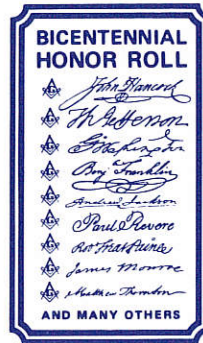 BICENTENNIAL
HONOR ROLL
John Hancock
Th Jefferson
G Washington
Benj Franklin
Andrew Jackson
Paul Revere
Rob Treat Paine
James Monroe
Matthew Thornton
AND MANY OTHERS